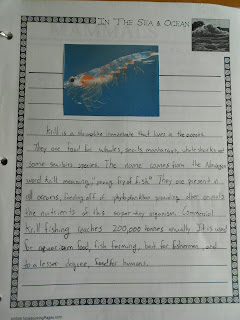 IN THE SEA & OCEAN
Krill is a shrimplike invertebrate that lives in the oceans.
They are food for whales, seals, manta rays, whale sharks and
some sea birds species. The name comes from the Norwegian
word krill meaning, "young fry of fish". They are present in
all oceans, feeding off of phytoplankton, providing other animals
the nutrients of this super-tiny organism. Commercial
krill fishing reaches 200,000 tonnes annually. It is used
for aquarium food, fish farming, bait for fisherman, and
to a lesser degree, food for humans.